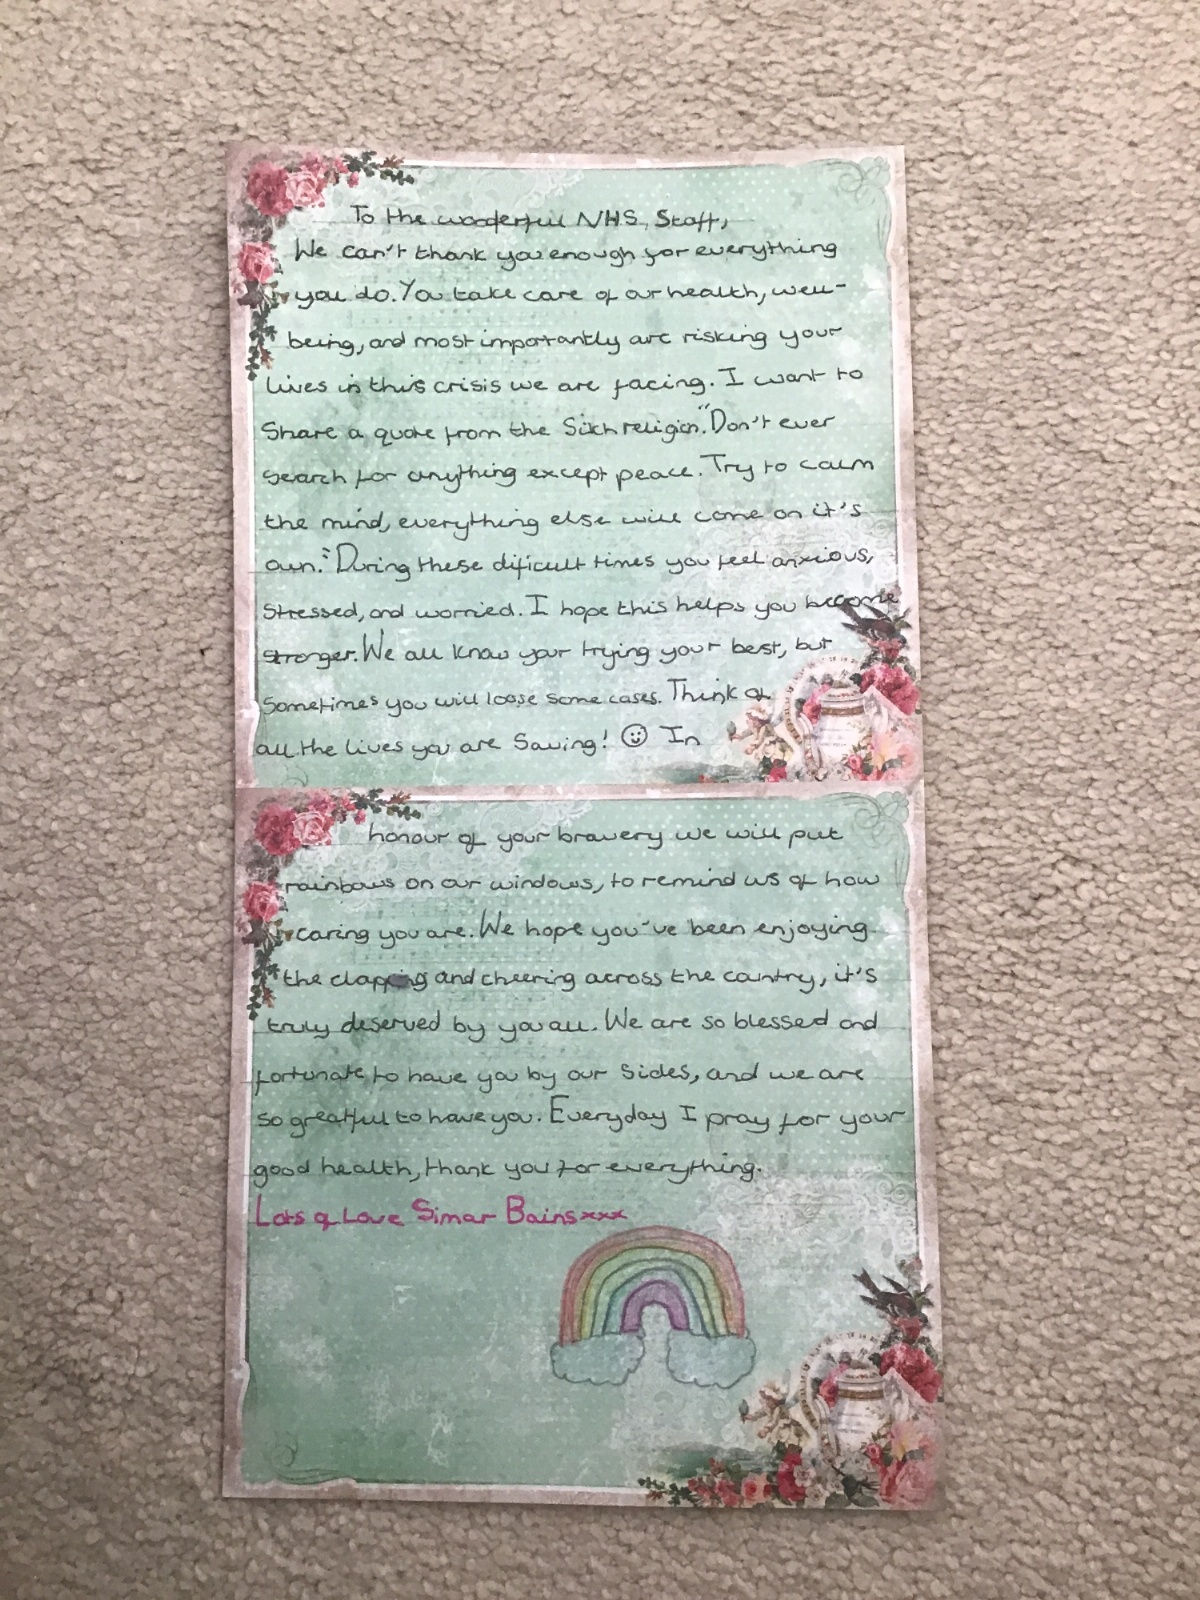 To the wonderful NHS, Staff,
We can't thank you enough for everything
you do. You take care of our health, well-
being, and most importantly are risking your
lives in this crisis we are facing. I want to
Share a quote from the Sikh religion. "Don't ever
search for anything except peace. Try to calm
the mind, everything else will come on it's
own." During these dificult times you feel anxious,
Stressed, and worried. I hope this helps you become
stronger. We all know your trying your best, but
Sometimes you will loose some cases. Think of
all the lives you are Saving! ☺ In
honour of your bravery we will put
rainbows on our windows, to remind us of how
caring you are. We hope you've been enjoying
the clapping and cheering across the country, it's
truly deserved by you all. We are so blessed and
fortunate to have you by our Sides, and we are
so greatful to have you. Everyday I pray for your
good health, thank you for everything.
Lots of Love Simar Bains xxx